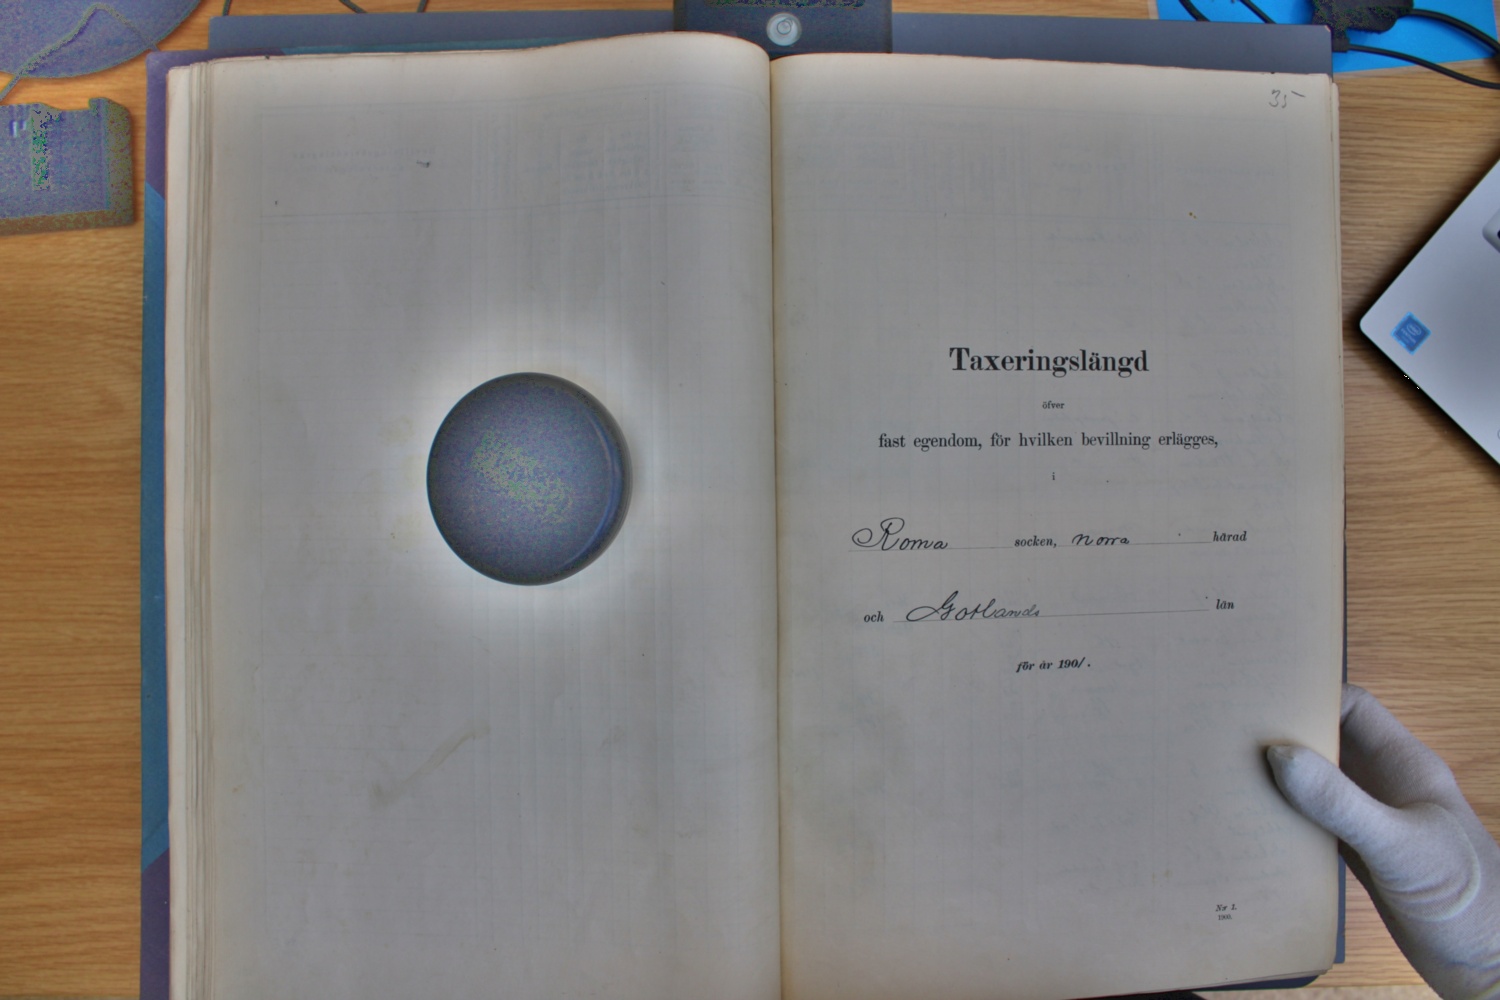 35
Taxeringslängd
öfver
fast egendom, för hvilken bevillning erlägges,
i
Roma socken, norra härad
och Gotlands län
för år 1901.
No 1.
1900.